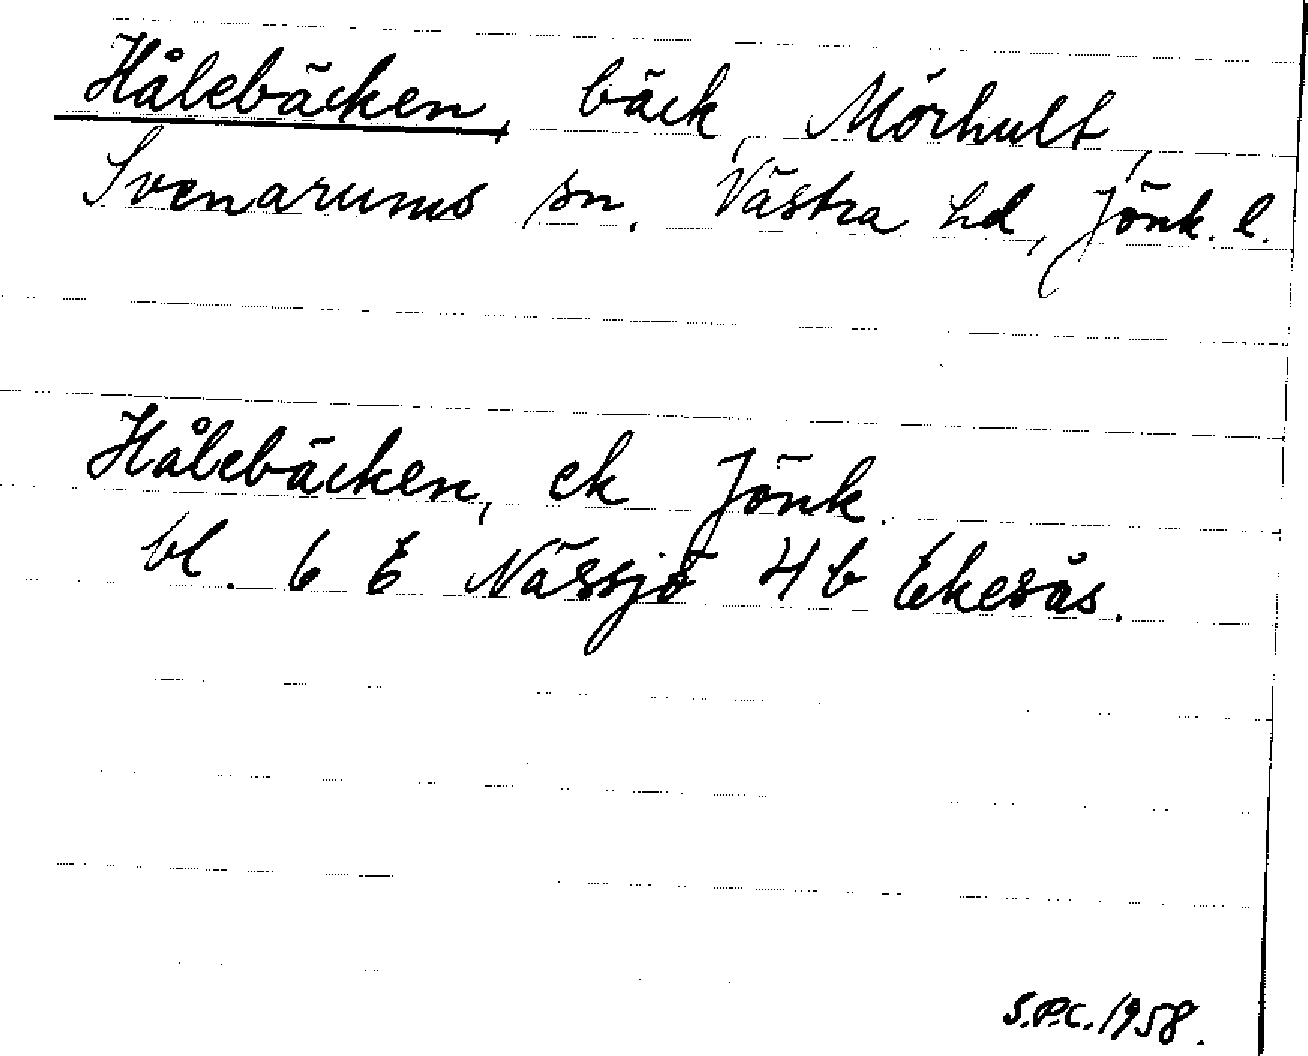 Hålebäcken, bäck, Mörhult,
Svenarums sn. Västra hd, Jönk. l.
Hålebäcken, ek Jönk.
bl. 6 E Nässjö 4 b Ekesås.
S.P.C. 1958.